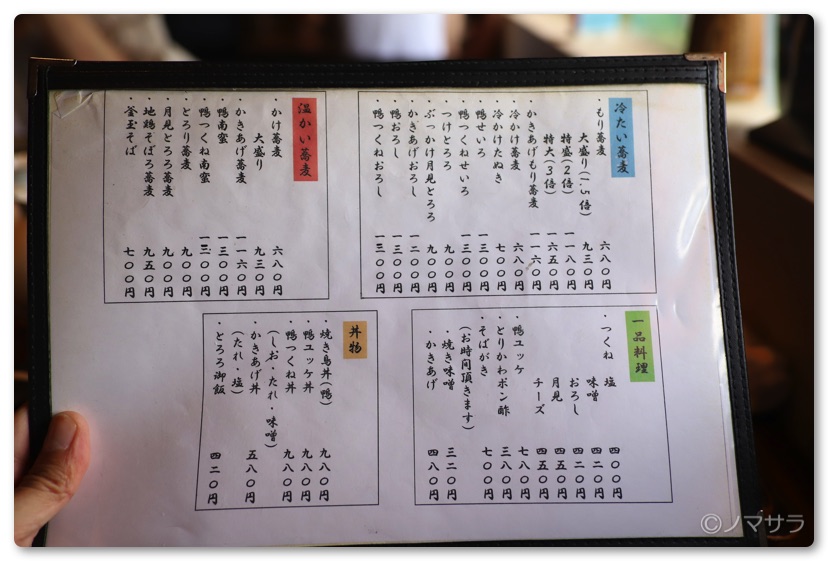 冷たい蕎麦
・もり蕎麦 六八〇円
大盛り(1.5倍) 九三〇円
特盛(2倍) 一一八〇円
特大(3倍) 一六五〇円
・かきあげもり蕎麦 一一六〇円
・冷かけ蕎麦 六八〇円
・冷かけたぬき 七〇〇円
・鴨せいろ 一三〇〇円
・鴨つくねせいろ 一三〇〇円
・つけとろろ 九〇〇円
・ぶっかけ月見とろろ 九〇〇円
・かきあげおろし 一二〇〇円
・鴨おろし 一三〇〇円
・鴨つくねおろし 一三〇〇円
温かい蕎麦
・かけ蕎麦 六八〇円
大盛り 九三〇円
・かきあげ蕎麦 一一六〇円
・鴨南蜜 一三〇〇円
・鴨つくね南蜜 一三〇〇円
・とろり蕎麦 九〇〇円
・月見とろろ蕎麦 九〇〇円
・地鶏そぼろ蕎麦 九五〇円
・釜玉そば 七〇〇円
一品料理
・つくね 塩 四〇〇円
味噌 四二〇円
おろし 四二〇円
月見 四五〇円
チーズ 四五〇円
・鴨ユッケ 七八〇円
・とりかわポン酢 三八〇円
・そばがき 七〇〇円
(お時間頂きます)
・焼き味噌 三二〇円
・かきあげ 四八〇円
丼物
・焼き鳥丼(鴨) 九八〇円
・鴨ユッケ丼 九八〇円
・鴨つくね丼 九八〇円
(しお・たれ・味噌)
・かきあげ丼 五八〇円
(たれ・塩)
・とろろ御飯 四二〇円
©ノマサラ